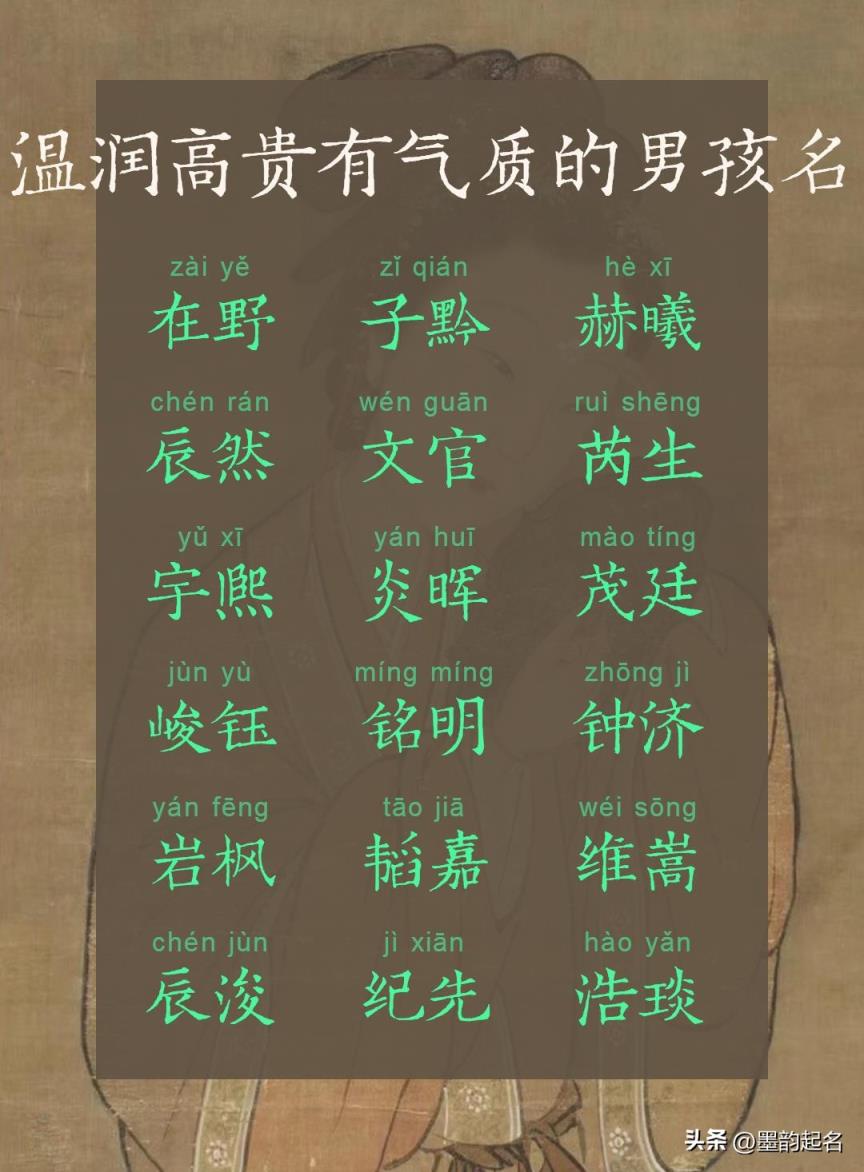 温润高贵有气质的男孩名
zài yě zǐ qián hè xī
在野 子黔 赫曦
chén rán wén guān ruì shēng
辰然 文官 芮生
yǔ xī yán huī mào tíng
宇熙 炎晖 茂廷
jùn yù míng míng zhōng jì
峻钰 铭明 钟济
yán fēng tāo jiā wéi sōng
岩枫 韬嘉 维嵩
chén jùn jì xiān hào yǎn
辰浚 纪先 浩琰
头条 @墨韵起名